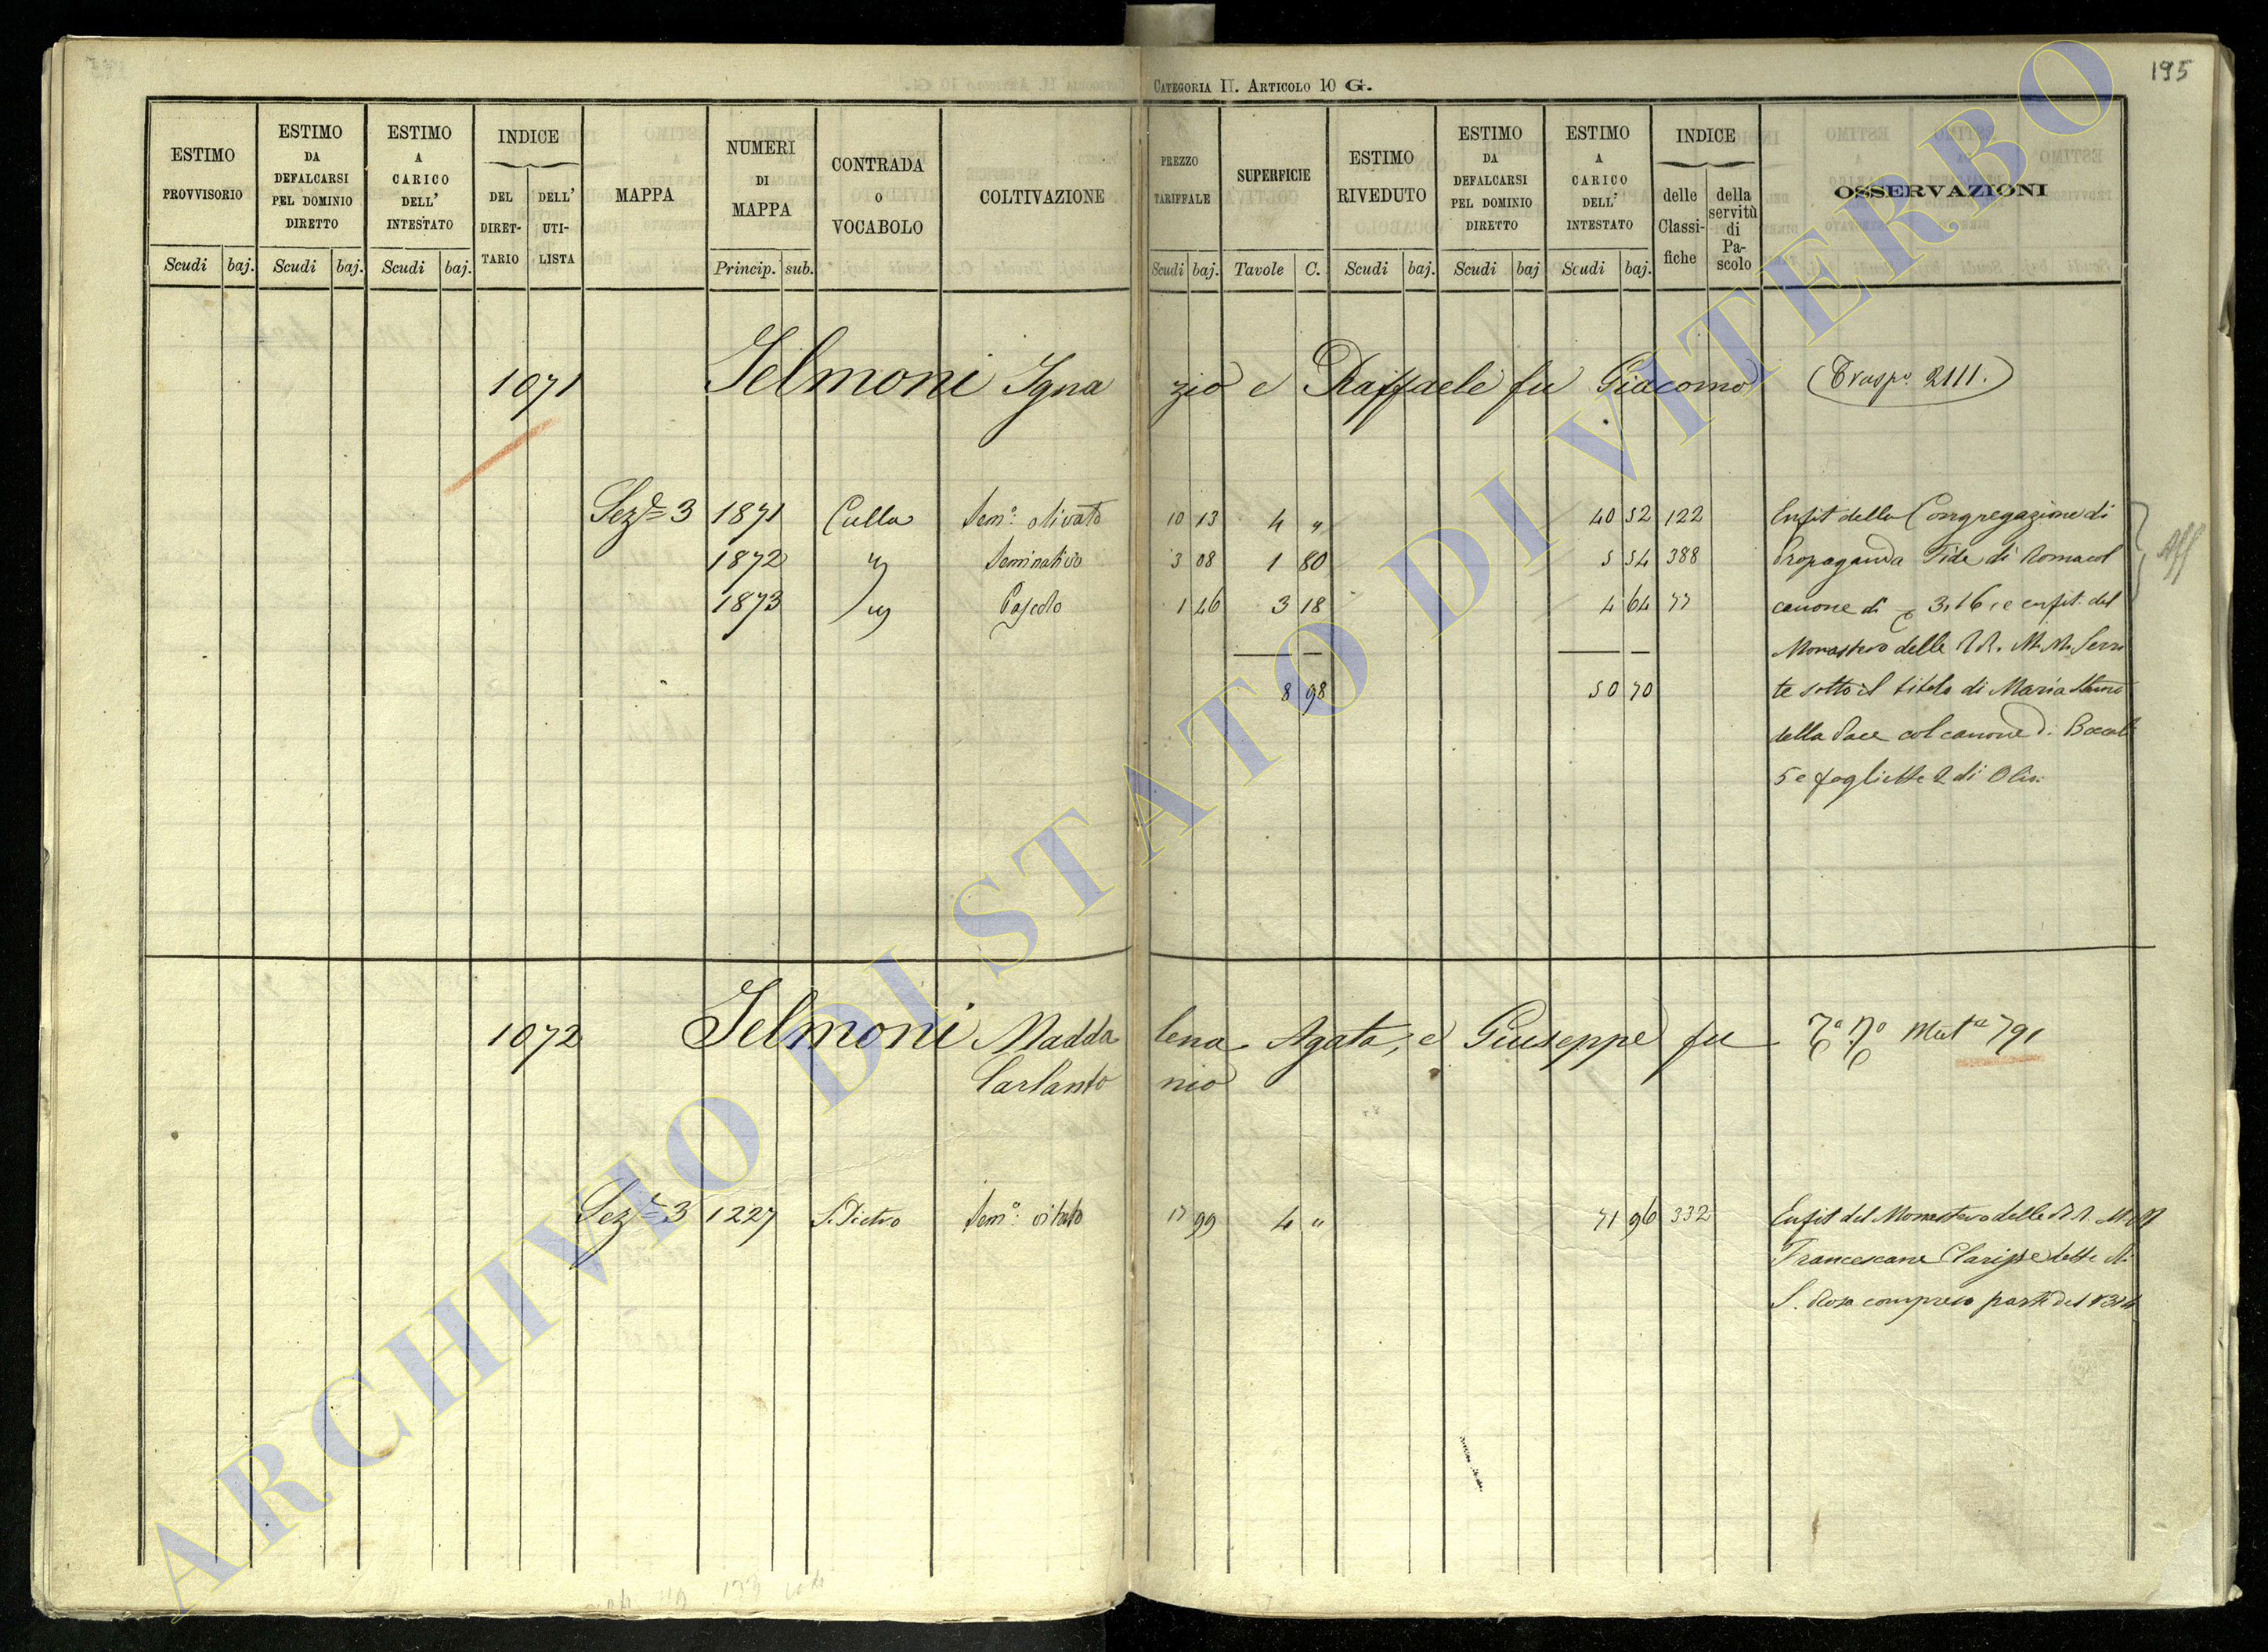 CATEGORIA II. ARTICOLO 10 G.
195
ESTIMO PROVVISORIO
ESTIMO DA DEFALCARSI PEL DOMINIO DIRETTO
ESTIMO A CARICO DELL' INTESTATO
INDICE
DEL DIRET-TARIO
DELL' UTI-LISTA
MAPPA
NUMERI DI MAPPA
CONTRADA O VOCABOLO
COLTIVAZIONE
PREZZO TARIFFALE
SUPERFICIE
ESTIMO RIVEDUTO
ESTIMO DA DEFALCARSI PEL DOMINIO DIRETTO
ESTIMO A CARICO DELL' INTESTATO
INDICE
delle Classi-fiche
della servitù di Pa-scolo
OSSERVAZIONI
Scudi baj. Scudi baj. Scudi baj. Princip. sub. Scudi baj. Tavole C. Scudi baj. Scudi baj Scudi baj.
1071 Selmoni Ignazio e Raffaele fu Giacomo (Traspo. 2111.)
Sez.e 3 1871 Culla Sem.o olivato 10 13 4 " 40 52 122 Enfit della Congregazione di
1872 " Seminativo 3 08 1 80 5 54 388 Propaganda Fide di Roma col
1873 " Pascolo 1 46 3 18 4 64 77 canone di 3,16, e enfit. del
Monastero delle RR. M.M. Servi
8 98 50 70 te sotto il titolo di Maria
della Pace col canone di Boccali
5 e fogliette 2 di Olio
Aff
1072 Selmoni Maddalena Agata, e Giuseppe fu Mut.e 791
Carlantonio
Sez.e 3 1227 S. Pietro Sem.o vitato 17 99 4 " 71 96 332 Enfit del Monastero delle RR. MM
Francescane Clarisse dette di
S. Rosa compreso parte del
ARCHIVIO DI STATO DI VITERBO